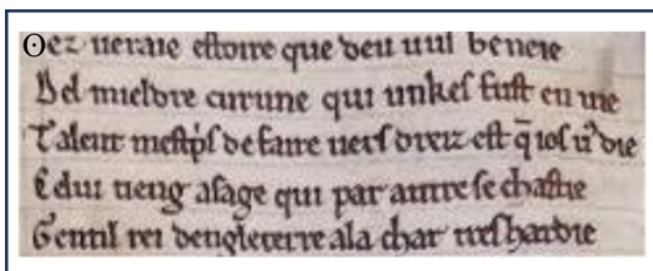 Oez ueraie estoire que deu uus beneie
Del mieldre curune qui unkes fust en uie
Talent mest pͥs de faire uers dreiz est q̄ ios uꝰ die
Celui tieng asage qui par autre se chastie
Gentil rei dengleterre ala char tres hardie